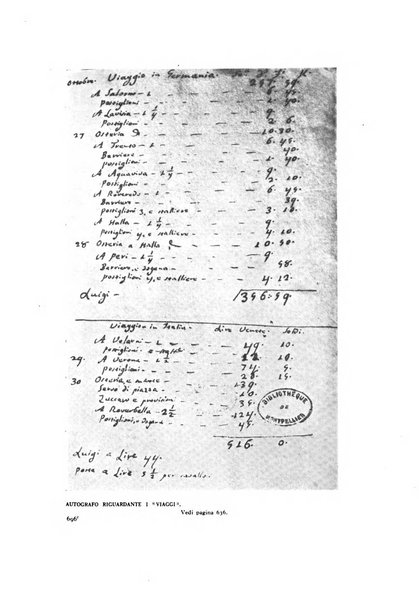 ottobre. Viaggio in Germania.
A Salorno - 1 6. 45.
postiglioni - 1. 40.
A Lavisa - 1 1/4 9.
Postiglioni - 2 6.
27 Osteria 10. 30.
A Trento - 1 6. 45.
Barriere 40.
postiglioni - 1. 40
A Aguaviva - 1 1/4 9.
Postiglioni - 2. 10.
A Roveredo - 1 6. 45.
Barriero - 39.
postiglioni 3, e stalliere 3. 10
A Halla - 1 1/4 9.
postiglioni 4, e stalliere 4. 10.
28 Osteria a Halla 10. 50.
A Peri - 1 1/4 9.
Barriero e dogana - 58.
postiglioni, e stalliere 4. 12.
Luigi - 396. 59.
Viaggio in Italia Lire Venete. Soldi.
A Volarni - 49. 10.
postiglioni
29. A Verona - 1 1/2 10.
postiglioni 5.
30 Osteria e mance 15.
Servo di piazza
Zuccaro e provisioni 35.
A Roverbella - 2 1/2 124.
Postiglioni, e dogana 45.
516. 0.
Luigi a Lire 44.
posta a Lire 5 1/2 per cavallo.
BIBLIOTHÈQUE
DE
MONTPELLIER
AUTOGRAFO RIGUARDANTE I "VIAGGI".
Vedi pagina 636.
696